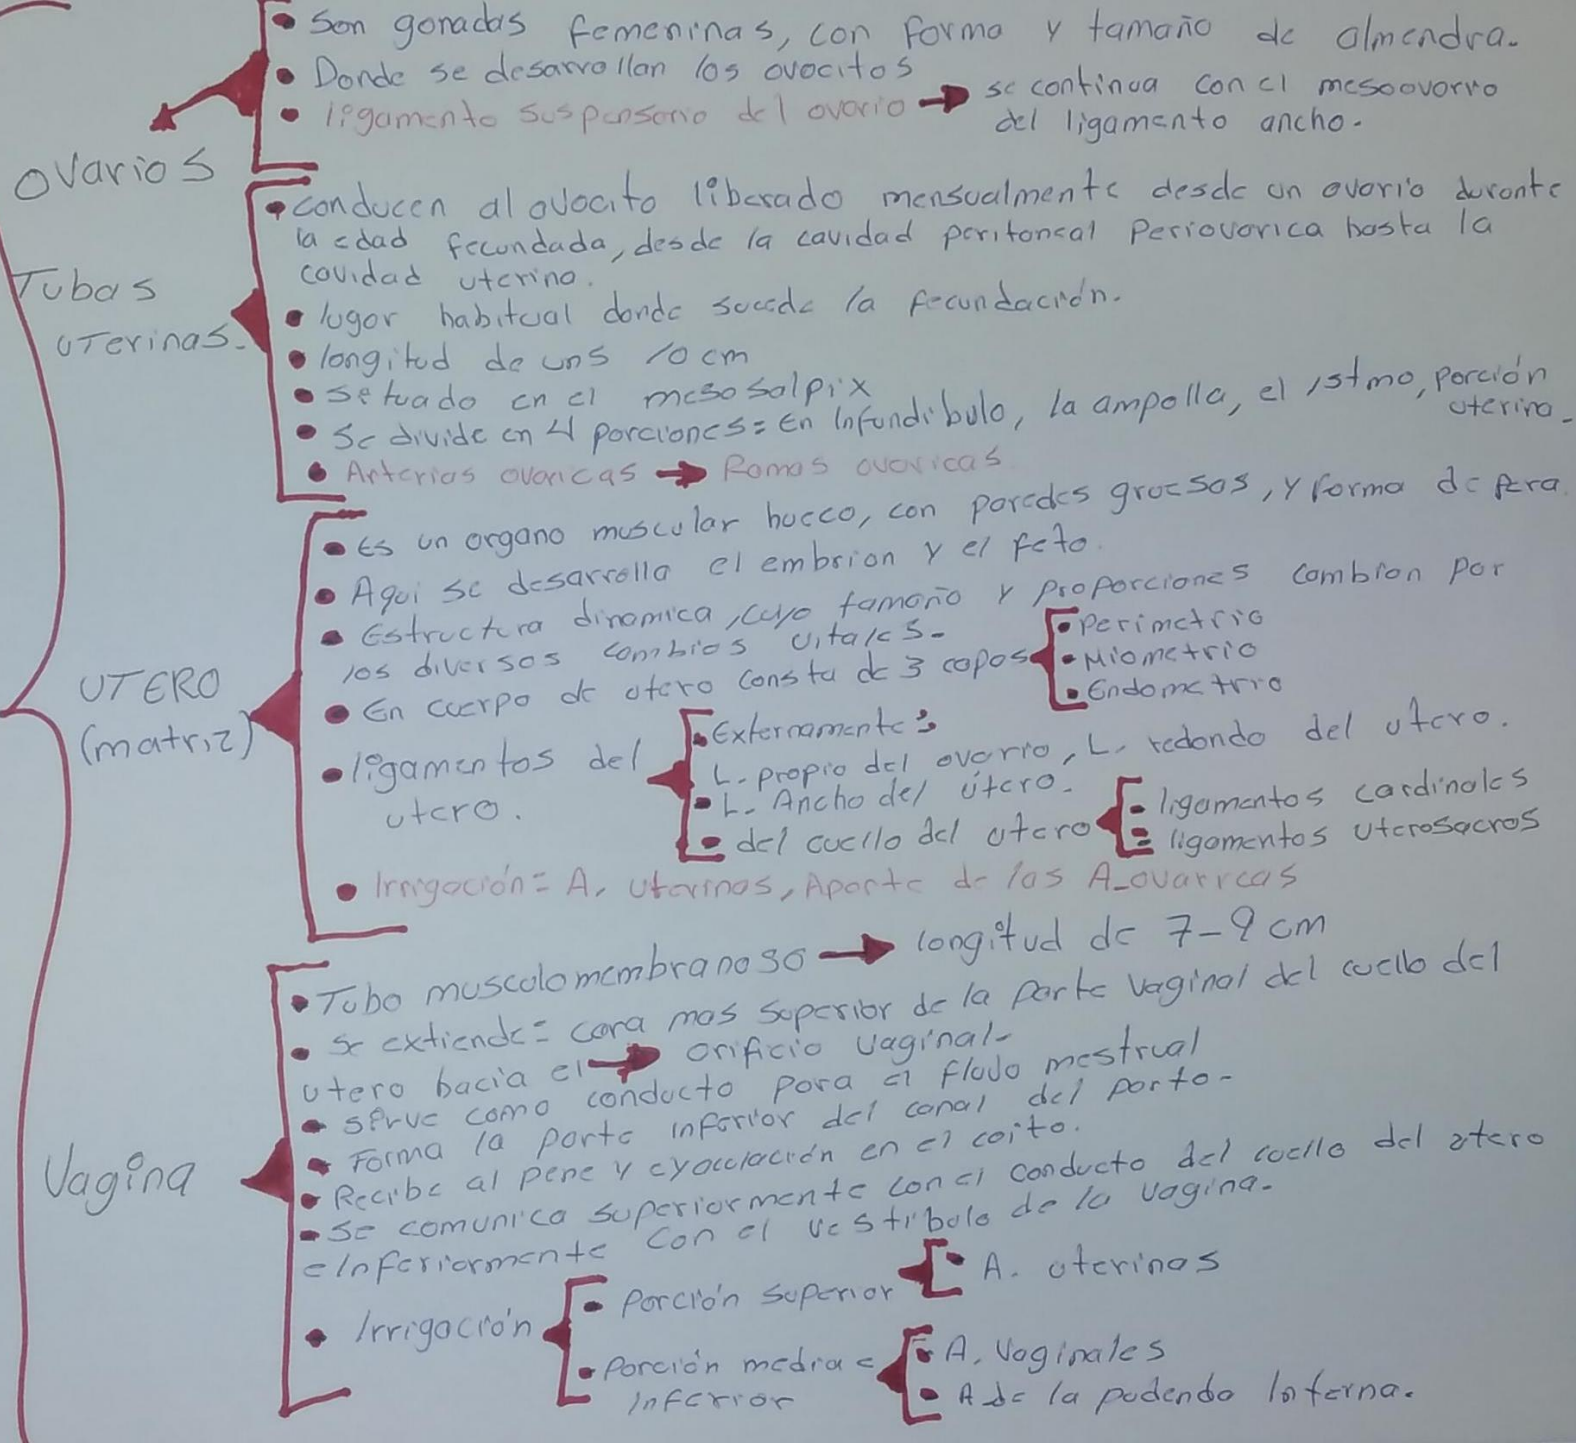 Ovarios
• Son gonadas femeninas, con forma y tamaño de almendra.
• Donde se desarrollan los ovocitos
• ligamento suspensorio del ovario → se continua con el mesoovorro
del ligamento ancho.
Tubas
uterinas.
• conducen al ovocito liberado mensualmente desde un ovario durante
la edad fecundada, desde la cavidad peritoneal Periovarica hasta la
cavidad uterina.
• lugar habitual donde sucede la fecundación.
• longitud de uns 10 cm
• setuado en el mesosalpix
• Se divide en 4 porciones = En Infundibulo, la ampolla, el istmo, porción
uterina.
• Arterias ovaricas → Ramas ovaricas
UTERO
(matriz)
• Es un organo muscular hueco, con paredes gruesas, y forma de pera.
• Aqui se desarrolla el embrion y el feto.
• Estructura dinamica, cuyo tamaño y proporciones cambian por
los diversos cambios vitales.
• En cuerpo de utero consta de 3 capas
• Perimetrio
• Miometrio
• Endometrio
• ligamentos del
utero.
• Externamente:
L. propio del ovario, L. redondo del utero.
• L. Ancho del útero.
• del cuello del utero
• ligamentos cardinales
• ligamentos uterosacros
• Irrigación = A. uterinas, Aporte de las A. ovaricas
Vagina
• Tubo musculomembranoso → longitud de 7-9 cm
• se extiende = cara mas superior de la parte vaginal del cuello del
utero hacia el → orificio vaginal-
• Sirve como conducto para el flujo mestrual
• Forma la parte inferior del canal del parto-
• Recibe al pene y eyaculación en el coito.
• Se comunica superiormente con el conducto del cuello del utero
e Inferiormente con el vestibulo de la vagina.
• Irrigación
• Porción superior
• A. uterinas
• Porción media e
Inferior
• A. Vaginales
• A de la pudenda Interna.